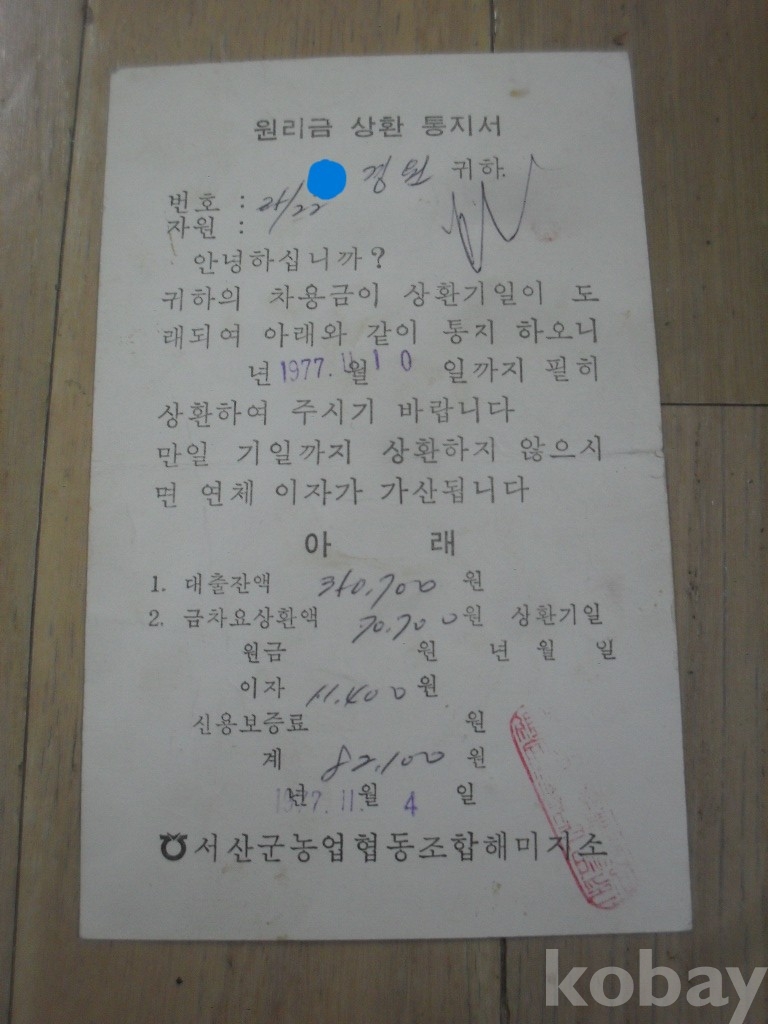 원리금 상환 통지서
경원 귀하.
번호 :
자원 :
안녕하십니까?
귀하의 차용금이 상환기일이 도
래되여 아래와 같이 통지 하오니
년 1977. 11. 월 10 일까지 필히
상환하여 주시기 바랍니다
만일 기일까지 상환하지 않으시
면 연체 이자가 가산됩니다
아 래
1. 대출잔액 원
2. 금차요상환액 70.700원 상환기일
원금 원 년 월 일
이자 11.400원
신용보증료 원
계 82,100원
1977. 11. 년 월 4 일
서산군농업협동조합해미지소
kobay